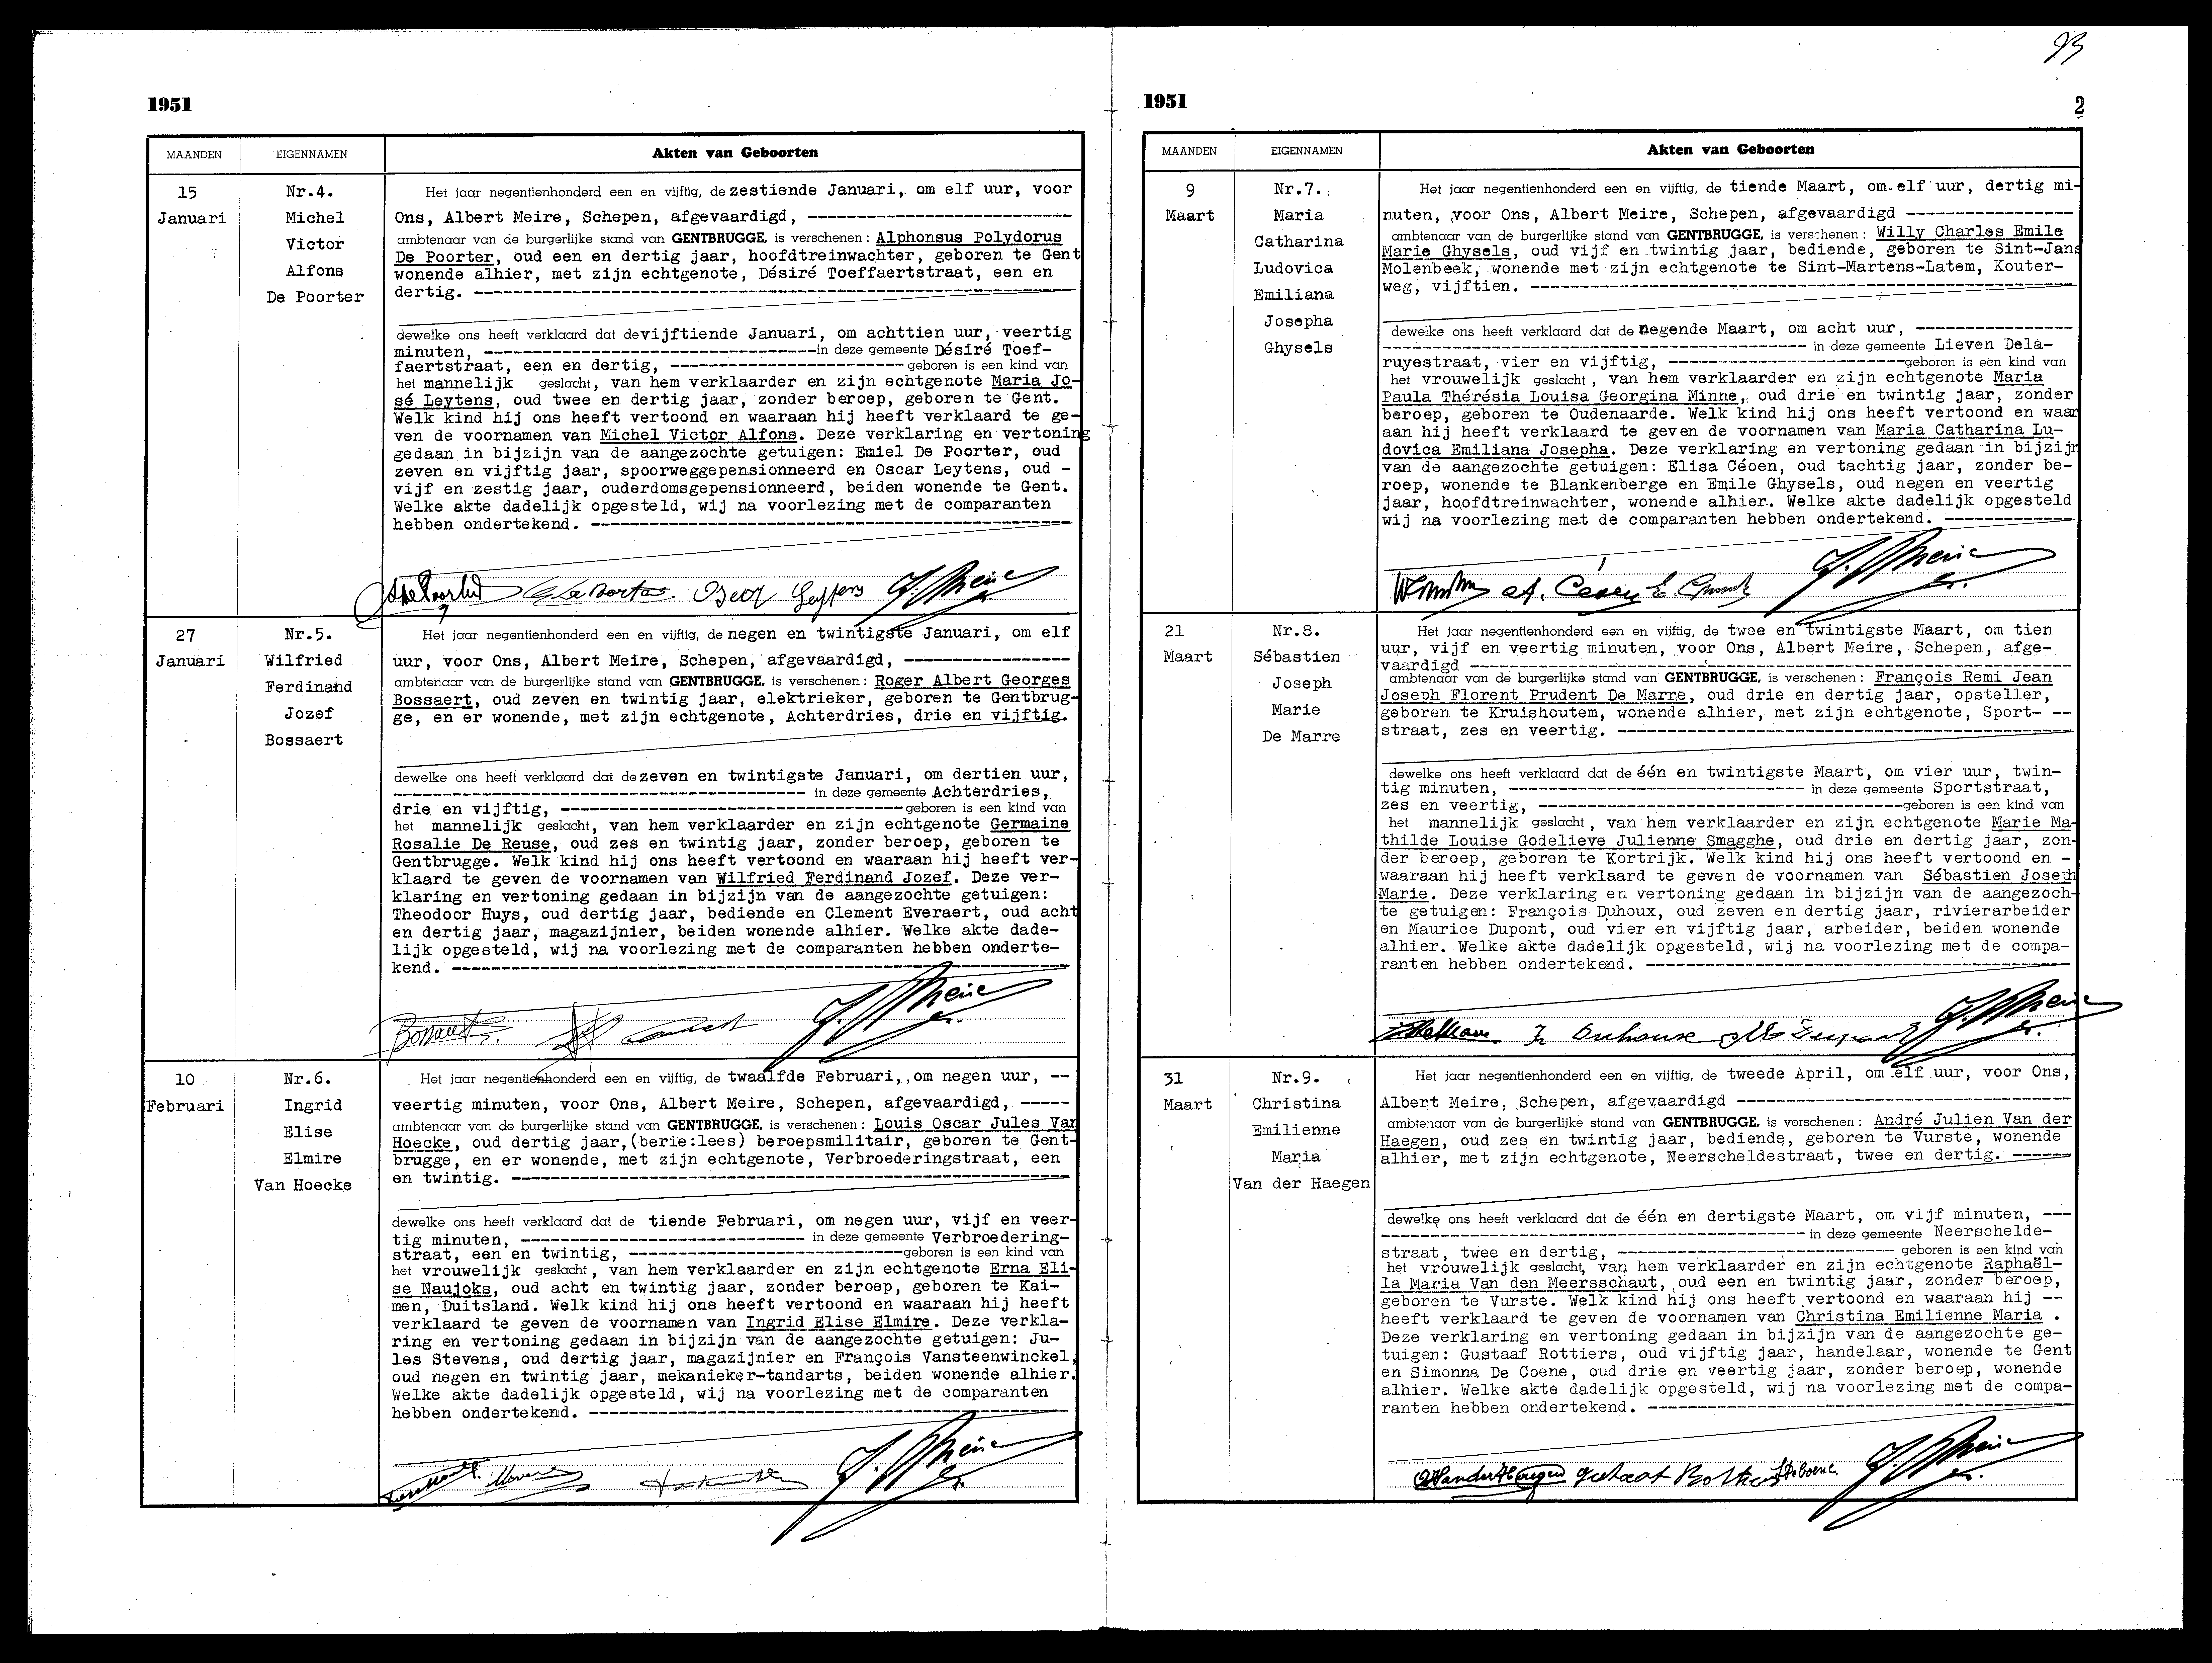 1951
MAANDEN EIGENNAMEN Akten van Geboorten
15
Januari
Nr.4.
Michel
Victor
Alfons
De Poorter
Het jaar negentienhonderd een en vijftig, de zestiende Januari, om elf uur, voor
Ons, Albert Meire, Schepen, afgevaardigd, ---------------------------
ambtenaar van de burgerlijke stand van GENTBRUGGE, is verschenen: Alphonsus Polydorus
De Poorter, oud een en dertig jaar, hoofdtreinwachter, geboren te Gent
wonende alhier, met zijn echtgenote, Désiré Toeffaertstraat, een en
dertig. ---------------------------
dewelke ons heeft verklaard dat de vijftiende Januari, om achttien uur, veertig
minuten, --------------------------- in deze gemeente Désiré Toef-
faertstraat, een en dertig, ------------------------ geboren is een kind van
het mannelijk geslacht, van hem verklaarder en zijn echtgenote Maria Jo-
sé Leytens, oud twee en dertig jaar, zonder beroep, geboren te Gent.
Welk kind hij ons heeft vertoond en waaraan hij heeft verklaard te ge-
ven de voornamen van Michel Victor Alfons. Deze verklaring en vertoning
gedaan in bijzijn van de aangezochte getuigen: Emiel De Poorter, oud
zeven en vijftig jaar, spoorweggepensionneerd en Oscar Leytens, oud -
vijf en zestig jaar, ouderdomsgepensionneerd, beiden wonende te Gent.
Welke akte dadelijk opgesteld, wij na voorlezing met de comparanten
hebben ondertekend. ---------------------------
27
Januari
Nr.5.
Wilfried
Ferdinand
Jozef
Bossaert
Het jaar negentienhonderd een en vijftig, de negen en twintigste Januari, om elf
uur, voor Ons, Albert Meire, Schepen, afgevaardigd, -----------------
ambtenaar van de burgerlijke stand van GENTBRUGGE, is verschenen: Roger Albert Georges
Bossaert, oud zeven en twintig jaar, elektrieker, geboren te Gentbrug-
ge, en er wonende, met zijn echtgenote, Achterdries, drie en vijftig.
dewelke ons heeft verklaard dat de zeven en twintigste Januari, om dertien uur,
--------------------------- in deze gemeente Achterdries,
drie en vijftig, --------------------------- geboren is een kind van
het mannelijk geslacht, van hem verklaarder en zijn echtgenote Germaine
Rosalie De Reuse, oud zes en twintig jaar, zonder beroep, geboren te
Gentbrugge. Welk kind hij ons heeft vertoond en waaraan hij heeft ver-
klaard te geven de voornamen van Wilfried Ferdinand Jozef. Deze ver-
klaring en vertoning gedaan in bijzijn van de aangezochte getuigen:
Theodoor Huys, oud dertig jaar, bediende en Clement Everaert, oud acht
en dertig jaar, magazijnier, beiden wonende alhier. Welke akte dade-
lijk opgesteld, wij na voorlezing met de comparanten hebben onderte-
kend. ---------------------------
10
Februari
Nr.6.
Ingrid
Elise
Elmire
Van Hoecke
Het jaar negentienhonderd een en vijftig, de twaalfde Februari, om negen uur, --
veertig minuten, voor Ons, Albert Meire, Schepen, afgevaardigd, -----
ambtenaar van de burgerlijke stand van GENTBRUGGE, is verschenen: Louis Oscar Jules Van
Hoecke, oud dertig jaar,(berie:lees) beroepsmilitair, geboren te Gent-
brugge, en er wonende, met zijn echtgenote, Verbroederingstraat, een
en twintig. ---------------------------
dewelke ons heeft verklaard dat de tiende Februari, om negen uur, vijf en veer-
tig minuten, --------------------------- in deze gemeente Verbroedering-
straat, een en twintig, --------------------------- geboren is een kind van
het vrouwelijk geslacht, van hem verklaarder en zijn echtgenote Erna Eli-
se Naujoks, oud acht en twintig jaar, zonder beroep, geboren te Kai-
men, Duitsland. Welk kind hij ons heeft vertoond en waaraan hij heeft
verklaard te geven de voornamen van Ingrid Elise Elmire. Deze verkla-
ring en vertoning gedaan in bijzijn van de aangezochte getuigen: Ju-
les Stevens, oud dertig jaar, magazijnier en François Vansteenwinckel,
oud negen en twintig jaar, mekanieker-tandarts, beiden wonende alhier.
Welke akte dadelijk opgesteld, wij na voorlezing met de comparanten
hebben ondertekend. ---------------------------
1951
2
MAANDEN EIGENNAMEN Akten van Geboorten
9
Maart
Nr.7.
Maria
Catharina
Ludovica
Emiliana
Josepha
Ghysels
Het jaar negentienhonderd een en vijftig, de tiende Maart, om elf uur, dertig mi-
nuten, voor Ons, Albert Meire, Schepen, afgevaardigd -----------------
ambtenaar van de burgerlijke stand van GENTBRUGGE, is verschenen: Willy Charles Emile
Marie Ghysels, oud vijf en twintig jaar, bediende, geboren te Sint-Jans
Molenbeek, wonende met zijn echtgenote te Sint-Martens-Latem, Kouter-
weg, vijftien. ---------------------------
dewelke ons heeft verklaard dat de negende Maart, om acht uur, ----------------
--------------------------- in deze gemeente Lieven Dela-
ruyestraat, vier en vijftig, ------------------------ geboren is een kind van
het vrouwelijk geslacht, van hem verklaarder en zijn echtgenote Maria
Paula Thérésia Louisa Georgina Minne, oud drie en twintig jaar, zonder
beroep, geboren te Oudenaarde. Welk kind hij ons heeft vertoond en waar
aan hij heeft verklaard te geven de voornamen van Maria Catharina Lu-
dovica Emiliana Josepha. Deze verklaring en vertoning gedaan in bijzijn
van de aangezochte getuigen: Elisa Céoen, oud tachtig jaar, zonder be-
roep, wonende te Blankenberge en Emile Ghysels, oud negen en veertig
jaar, hoofdtreinwachter, wonende alhier. Welke akte dadelijk opgesteld
wij na voorlezing met de comparanten hebben ondertekend. -------------
21
Maart
Nr.8.
Sébastien
Joseph
Marie
De Marre
Het jaar negentienhonderd een en vijftig, de twee en twintigste Maart, om tien
uur, vijf en veertig minuten, voor Ons, Albert Meire, Schepen, afge-
vaardigd ---------------------------
ambtenaar van de burgerlijke stand van GENTBRUGGE, is verschenen: François Remi Jean
Joseph Florent Prudent De Marre, oud drie en dertig jaar, opsteller,
geboren te Kruishoutem, wonende alhier, met zijn echtgenote, Sport- --
straat, zes en veertig. ---------------------------
dewelke ons heeft verklaard dat de één en twintigste Maart, om vier uur, twin-
tig minuten, --------------------------- in deze gemeente Sportstraat,
zes en veertig, --------------------------- geboren is een kind van
het mannelijk geslacht, van hem verklaarder en zijn echtgenote Marie Ma-
thilde Louise Godelieve Julienne Smagghe, oud drie en dertig jaar, zon-
der beroep, geboren te Kortrijk. Welk kind hij ons heeft vertoond en -
waaraan hij heeft verklaard te geven de voornamen van Sébastien Joseph
Marie. Deze verklaring en vertoning gedaan in bijzijn van de aangezoch-
te getuigen: François Duhoux, oud zeven en dertig jaar, rivierarbeider
en Maurice Dupont, oud vier en vijftig jaar, arbeider, beiden wonende
alhier. Welke akte dadelijk opgesteld, wij na voorlezing met de compa-
ranten hebben ondertekend. ---------------------------
31
Maart
Nr.9.
Christina
Emilienne
Maria
Van der Haegen
Het jaar negentienhonderd een en vijftig, de tweede April, om elf uur, voor Ons,
Albert Meire, Schepen, afgevaardigd ---------------------------
ambtenaar van de burgerlijke stand van GENTBRUGGE, is verschenen: André Julien Van der
Haegen, oud zes en twintig jaar, bediende, geboren te Vurste, wonende
alhier, met zijn echtgenote, Neerscheldestraat, twee en dertig. ------
dewelke ons heeft verklaard dat de één en dertigste Maart, om vijf minuten, ---
--------------------------- in deze gemeente Neerschelde-
straat, twee en dertig, --------------------------- geboren is een kind van
het vrouwelijk geslacht, van hem verklaarder en zijn echtgenote Raphaël-
la Maria Van den Meersschaut, oud een en twintig jaar, zonder beroep,
geboren te Vurste. Welk kind hij ons heeft vertoond en waaraan hij --
heeft verklaard te geven de voornamen van Christina Emilienne Maria .
Deze verklaring en vertoning gedaan in bijzijn van de aangezochte ge-
tuigen: Gustaaf Rottiers, oud vijftig jaar, handelaar, wonende te Gent
en Simonna De Coene, oud drie en veertig jaar, zonder beroep, wonende
alhier. Welke akte dadelijk opgesteld, wij na voorlezing met de compa-
ranten hebben ondertekend. ---------------------------